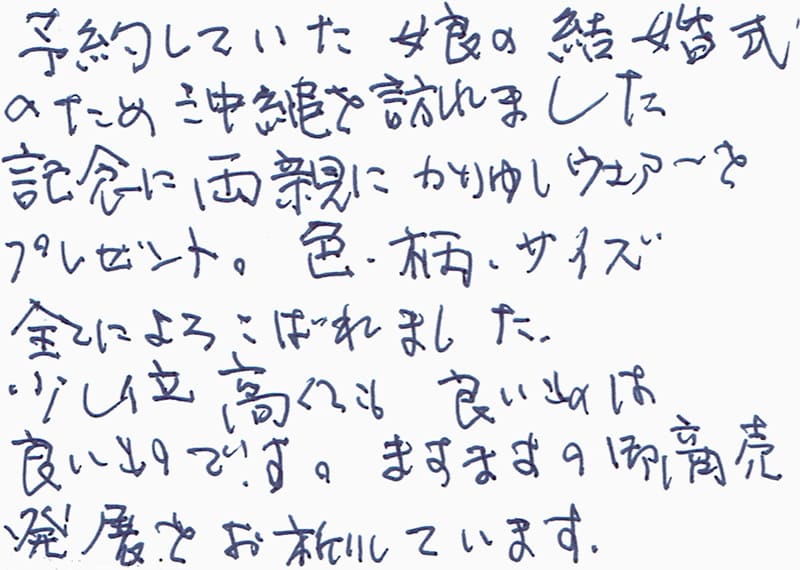 予約していた 娘の 結婚式
のため 沖縄を訪れました
記念に両親に かりゆしウェアーを
プレゼント。色・柄・サイズ
全てによろこばれました。
少し位 高くても 良い物は
良い物です。ますますの御商売
発展をお祈りしています。